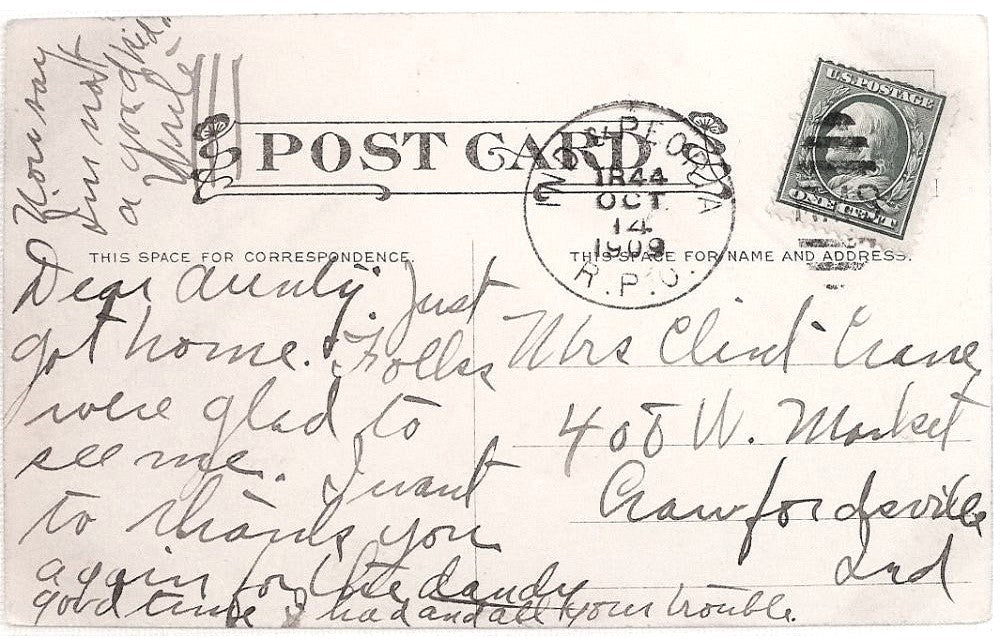 POST CARD
U.S. POSTAGE
ONE CENT
PEORIA
TR 44
OCT.
14
1909
R.P.O.
THIS SPACE FOR CORRESPONDENCE.
THIS SPACE FOR NAME AND ADDRESS.
Dear Aunty: Just
got home. Folks
were glad to
see me. I want
to thank you
again for the dandy
good time I had and all your trouble.
say
I'm not
a good kid.
Mrs Clint Crane
408 W. Market
Crawfordsville
Ind